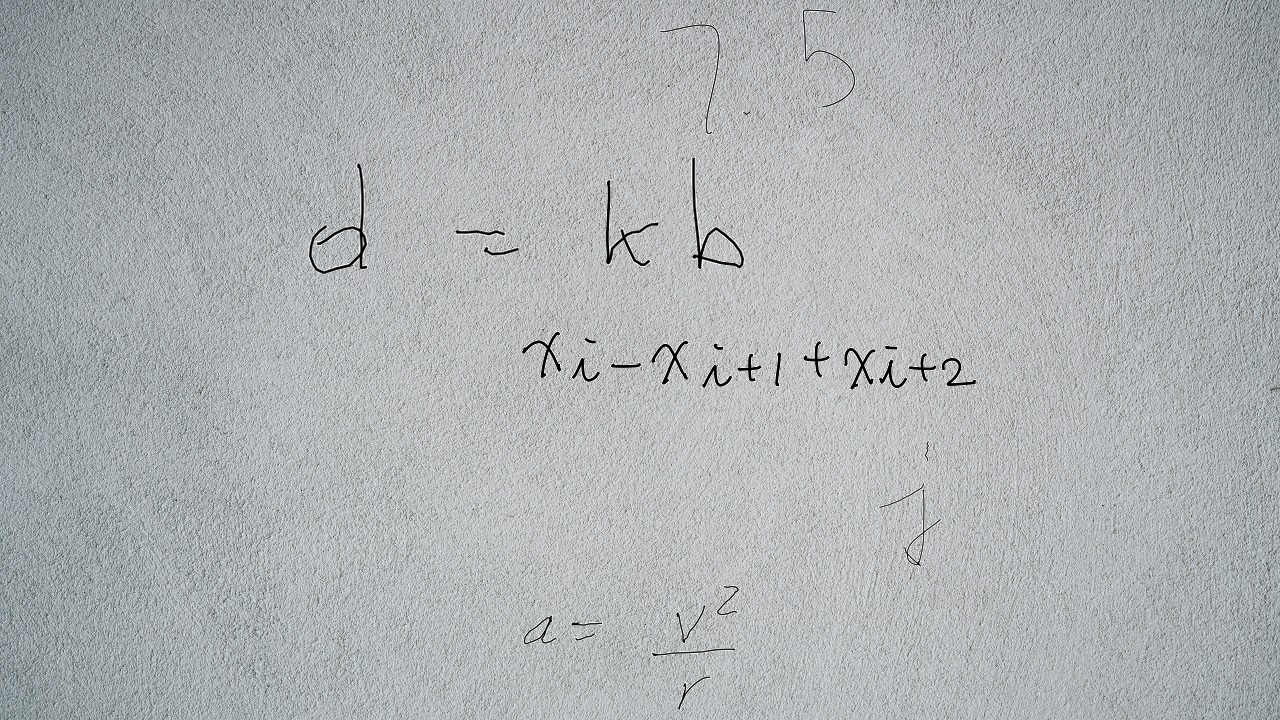 7.5
d = kb
x_i - x_{i+1} + x_{i+2}
j
a = \frac{v^2}{r}